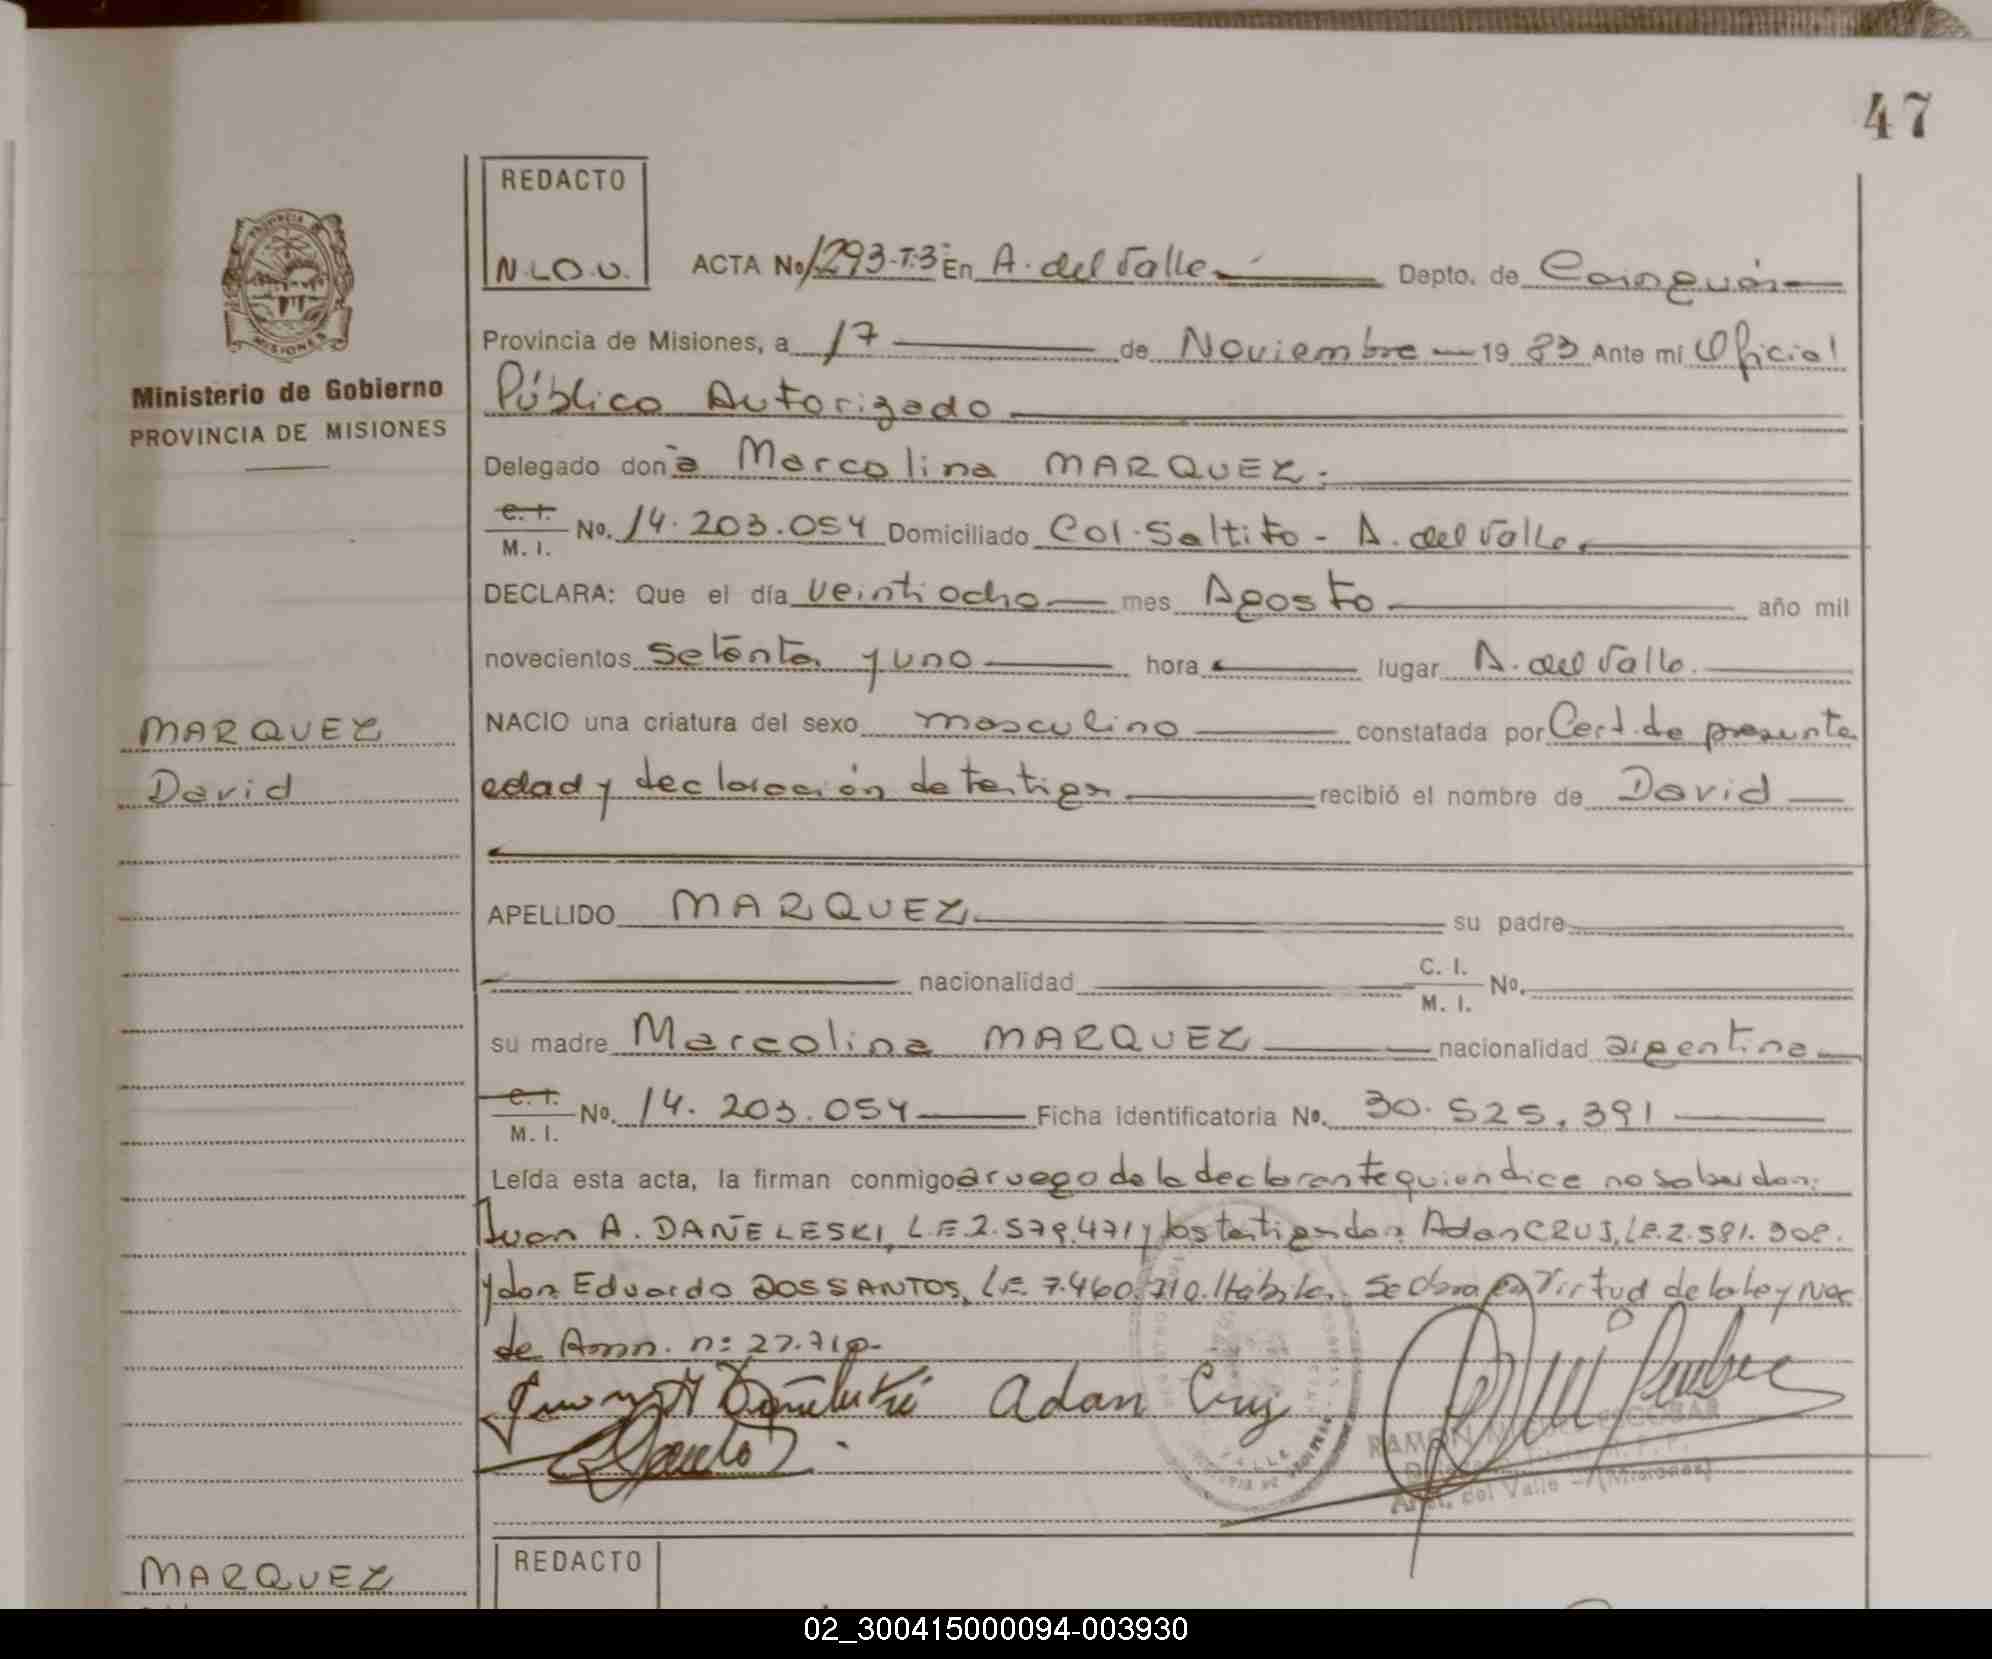 47
REDACTO
N.L.O.U.
ACTA No. 1293-T.3 En A. del Valle Depto. de Cainguás
PROVINCIA
MISIONES
Ministerio de Gobierno
PROVINCIA DE MISIONES
Provincia de Misiones, a 17 de Noviembre 19 83 Ante mí Oficial
Público Autorizado
Delegado don a Marcolina MARQUEZ.
C. I. M. I. No. 14.203.054 Domiciliado Col. Saltito - A. del Valle
DECLARA: Que el día veintiocho mes Agosto año mil
novecientos setenta y uno hora lugar A. del Valle.
MARQUEZ
David
NACIO una criatura del sexo masculino constatada por Cert. de presunta
edad y declaración de testigos recibió el nombre de David
APELLIDO MARQUEZ su padre
nacionalidad C. I. M. I. No.
su madre Marcolina MARQUEZ nacionalidad argentina
C. I. M. I. No. 14.203.054 Ficha identificatoria No. 30.525.391
Leída esta acta, la firman conmigo a ruego de la declarante quien dice no saber don:
Juan A. DAÑELESKI, L.E. 2.579.471 y los testigos don: Adan CRUS, L.E. 2.581.308.
y don Eduardo DOS SANTOS, L.E. 7.460.710. Hábiles. Se labra en virtud de la ley Nac
de Amn. n: 22.710-
Adan Cruz
RAMON MIGUEL ESCOBAR
Arist. del Valle - (Misiones)
MARQUEZ
REDACTO
02_300415000094-003930